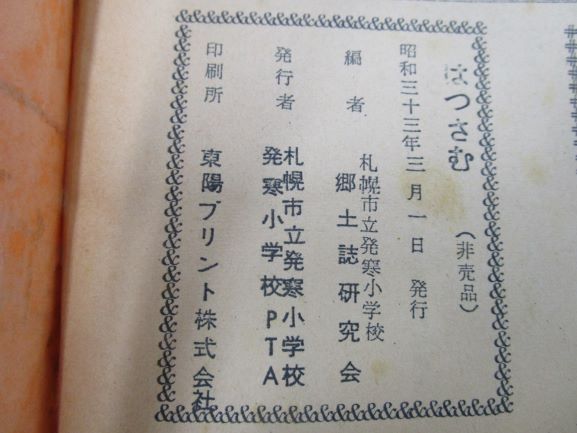 はつさむ
(非売品)
昭和三十三年三月一日 発行
編者 札幌市立発寒小学校
郷土誌研究会
発行者 札幌市立発寒小学校
発寒小学校PTA
印刷所 東陽プリント株式会社